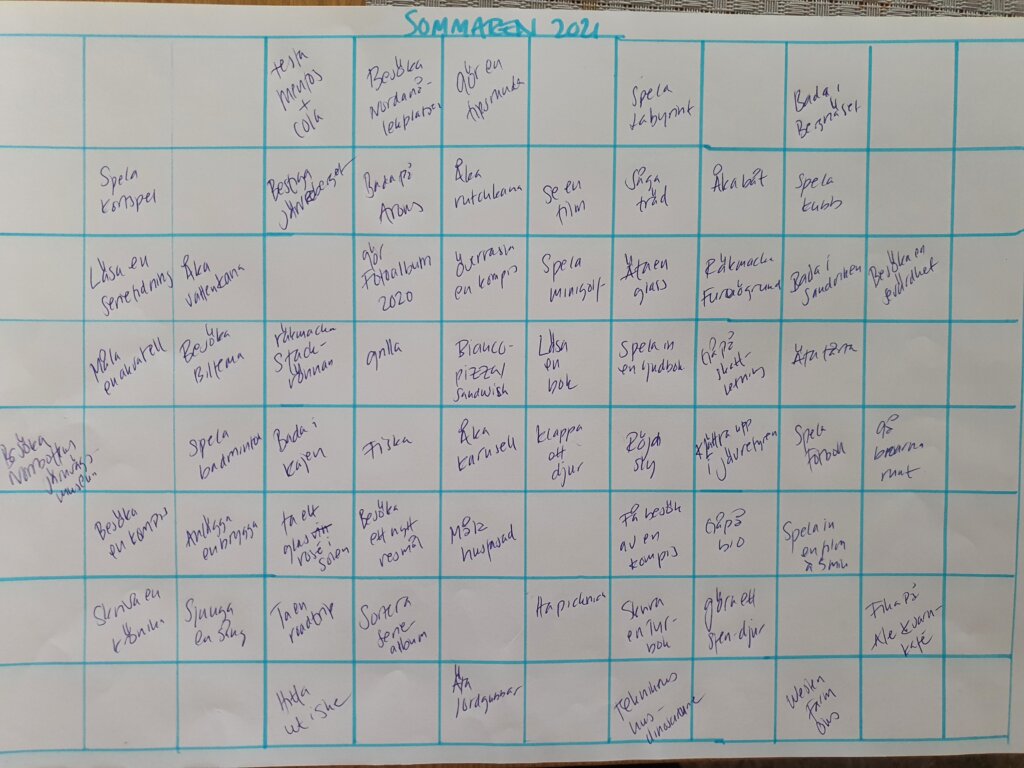 SOMMAREN 2021
testa
mentos
+
cola
Besöka
Nordanå-
lekplatsen
Gör en
tipsrunda
Spela
Labyrint
Bada i
Bergnäset
Spela
kortspel
Bestiga
Bada på
Åka
rutchkana
Se en
film
Såga
träd
Åka båt
Spela
kubb
Läsa en
serietidning
Åka
vattenkana
gör
Fotoalbum
2020
Överraska
en kompis
Spela
minigolf
Äta en
glass
Räkmacka
Furuögrund
Bada i
Sandviken
Besöka en
Måla
en akvarell
Besöka
Biltema
räkmacka
Stack-
rönnan
grilla
Bianco-
pizza/
Sandwish
Läsa
en
bok
Spela in
en ljudbok
Gå på
skatt-
letning
Äta tårta
Besöka
Norrbottens
järnvägs-
museum
Spela
badminton
Bada i
kajen
Fiska
Åka
karusell
Klappa
ett
djur
Röja
sly
Klättra upp
i Jävretyren
Spela
Fotboll
Gå
broarna
runt
Besöka
en kompis
Anlägga
en brygga
ta ett
glas
rosé i
Solen
Besöka
ett nytt
resmål
Måla
husfasad
Få besök
av en
kompis
Gå på
bio
Spela in
en film
à 5 min
Skriva en
krönika
Sjunga
en Sång
Ta en
roadtrip
Sortera
serie
album
Ha picknick
Skriva
en Tur-
bok
göra ett
Sten-djur
Fika på
kafé
Hitta
ut i Ske
Äta
Jordgubbar
Teknikens
hus-
dinosaurie
Western
Farm